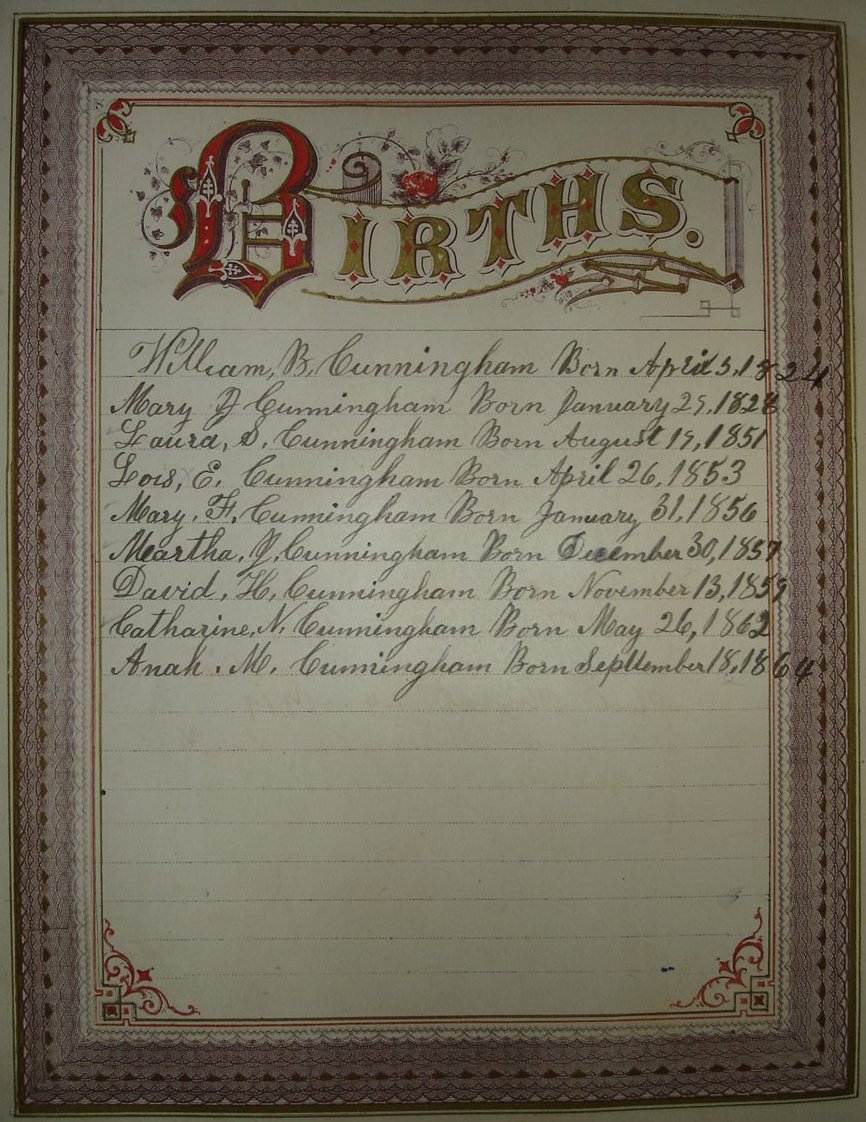 BIRTHS.
William, B, Cunningham Born April 5, 1824
Mary J Cunningham Born January 29, 1828
Laura, S, Cunningham Born August 19, 1851
Lois, E. Cunningham Born April 26, 1853
Mary, F, Cunningham Born January 31, 1856
Martha, J, Cunningham Born December 30, 1857
David, H, Cunningham Born November 13, 1859
Catharine, N, Cunningham Born May 26, 1862
Anah, M, Cunningham Born Septtember 18, 1864